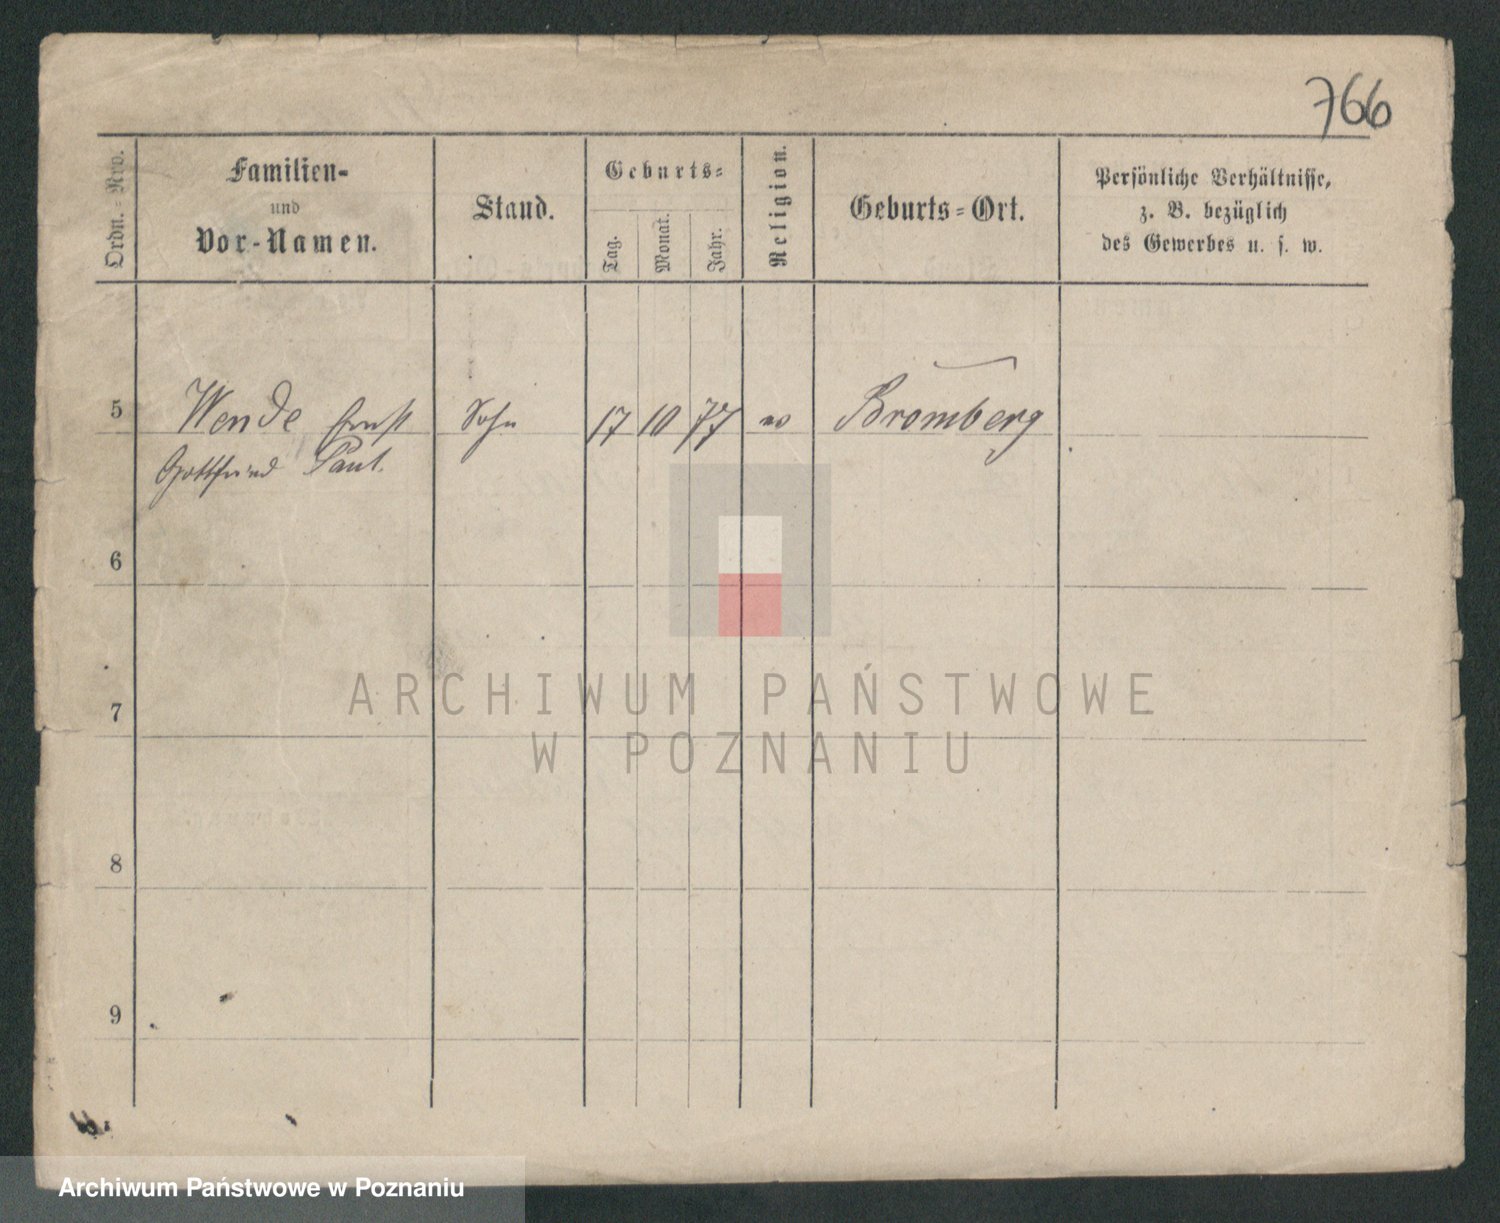 766
Ordn.-Nro.
Familien-
und
Vor-Namen.
Stand.
Geburts-
Tag.
Monat.
Jahr.
Religion.
Geburts-Ort.
Persönliche Verhältnisse,
z. B. bezüglich
des Gewerbes u. s. w.
5 Wende Ernst Sohn 17 10 77 ev Bromberg
Gottfried Paul.
6
7
8
9
ARCHIWUM PAŃSTWOWE
W POZNANIU
Archiwum Państwowe w Poznaniu